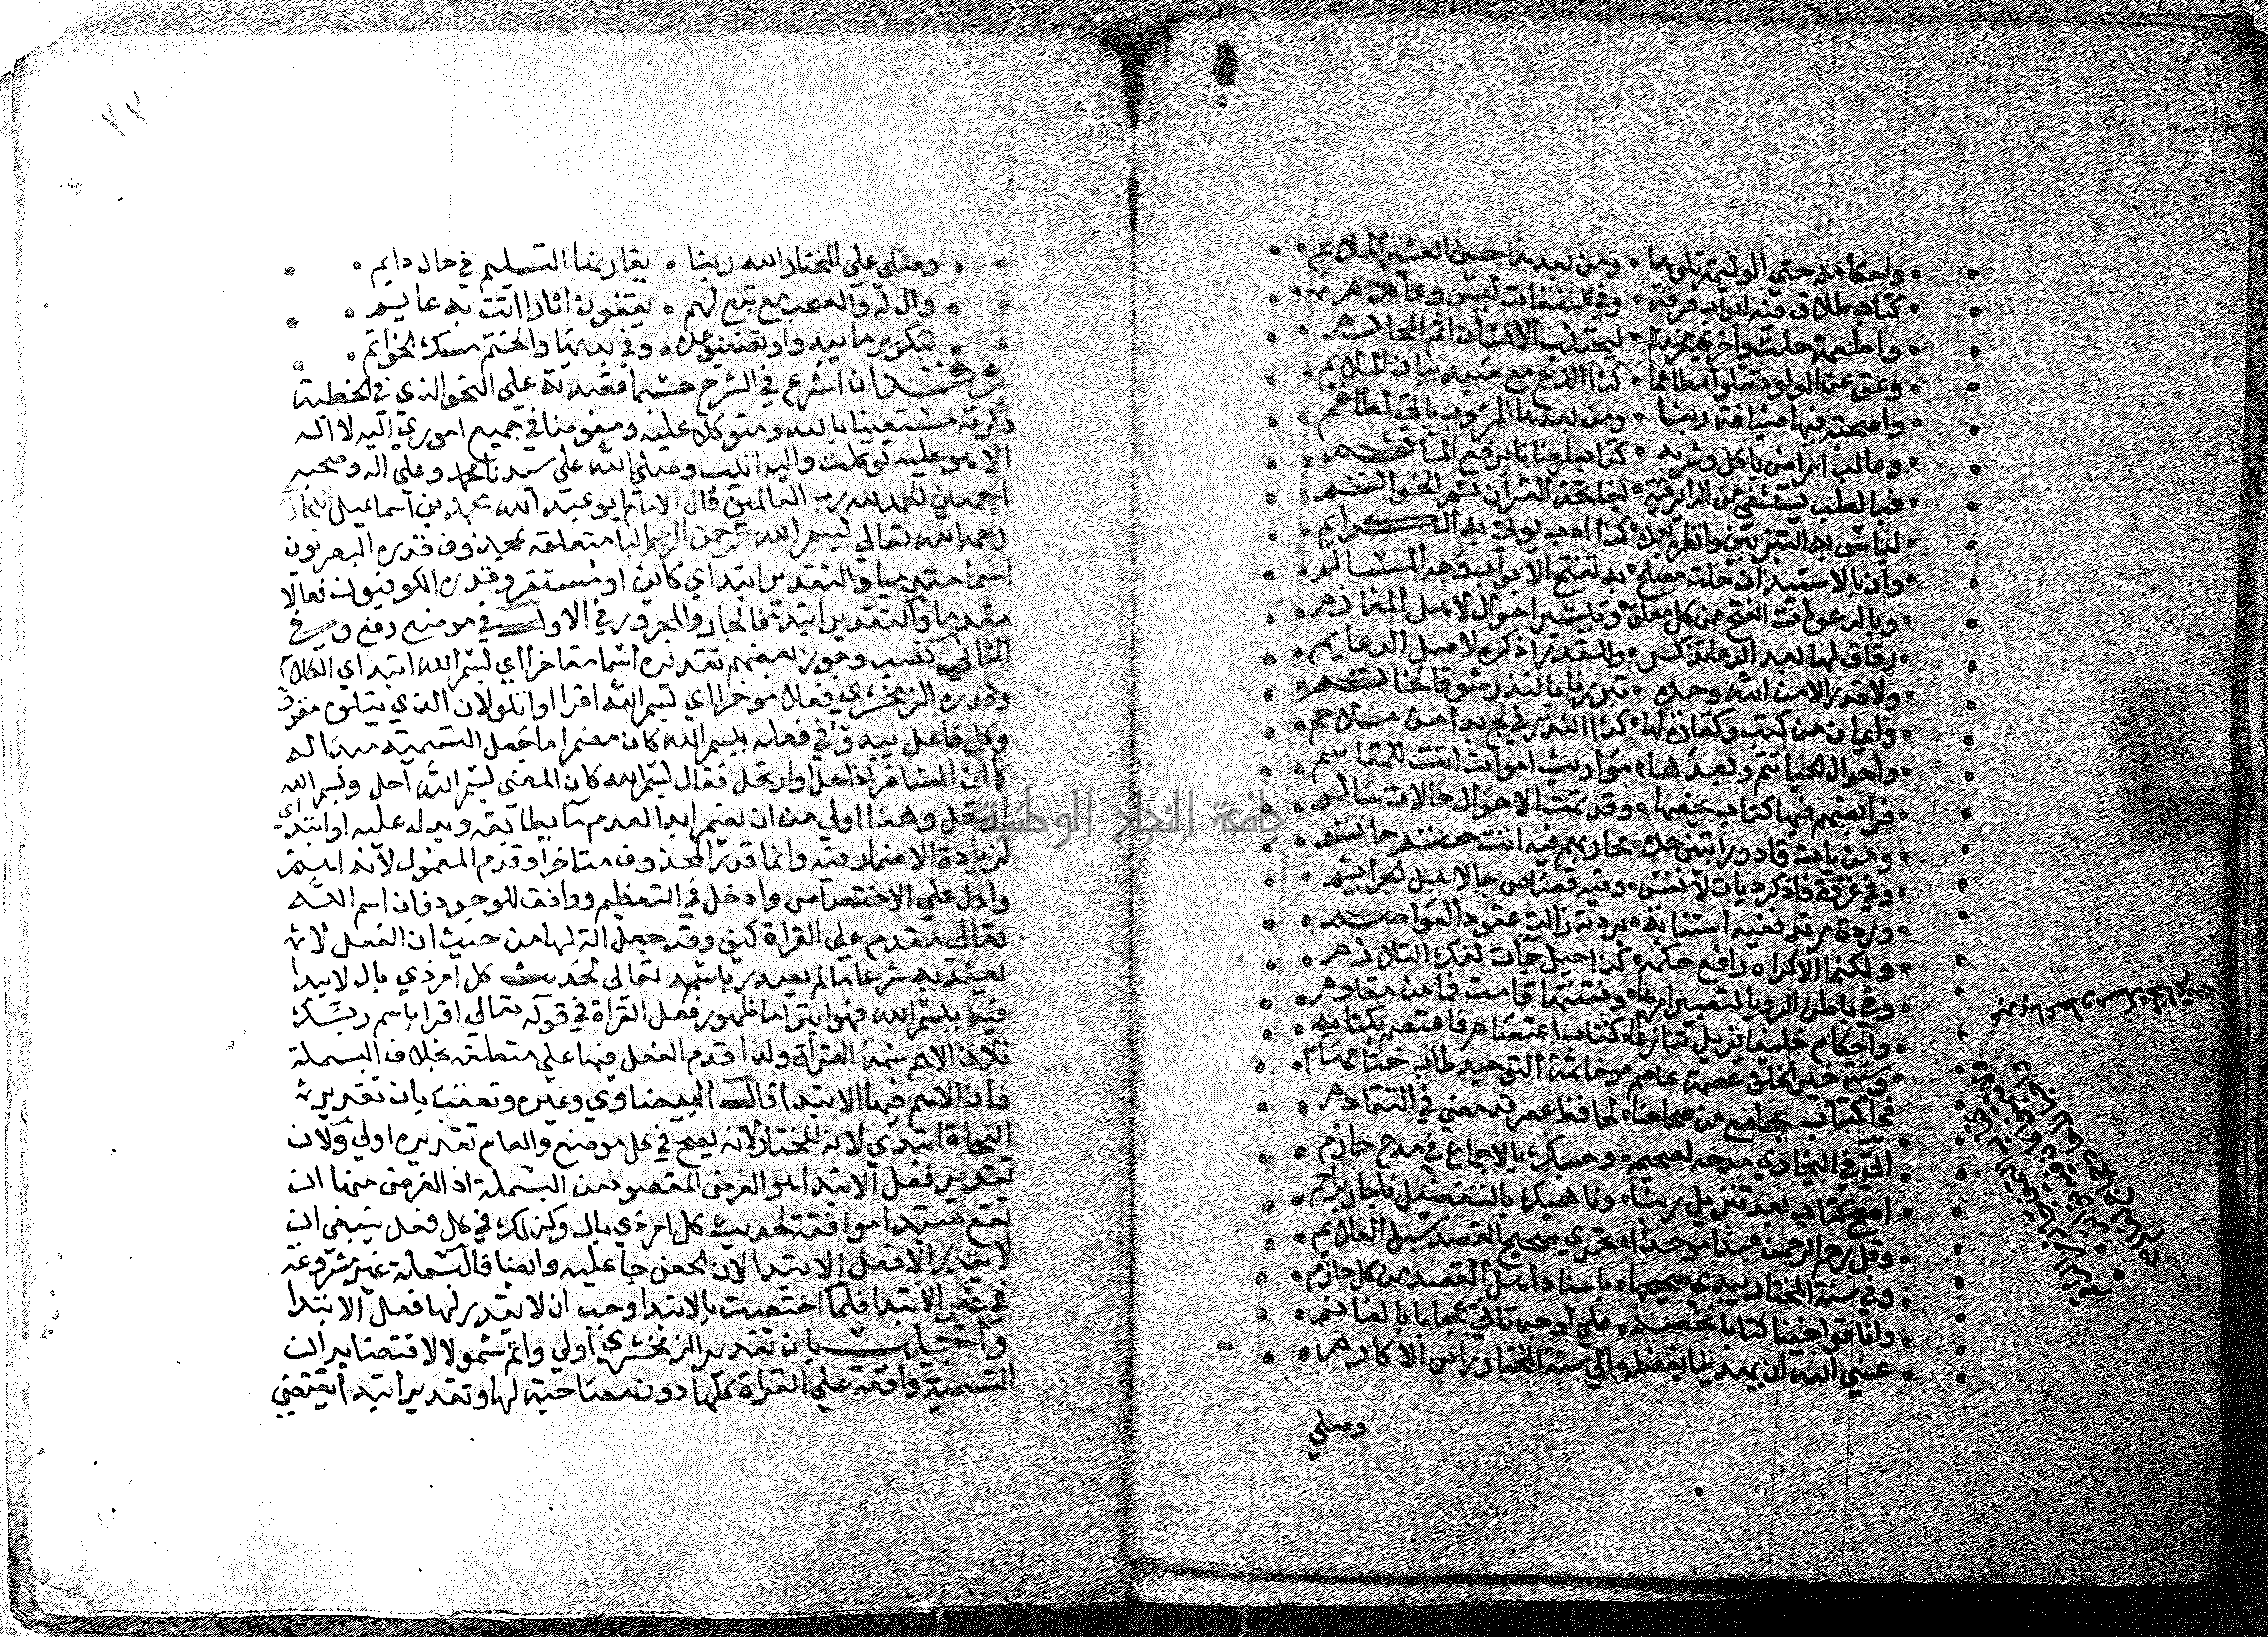 واحكامه حتي الوليمة تلوها • ومن بعدها حسن العشير الملايم
كتاب طلاق فيه ابواب فرقة • وفي النفقات
واطعمة حلت واخري • ليجتنب الانسان اثم المحارم
وعق عن المولود تتلوا مطاعما • كذا الذبح مع صيد بيان الملايم
واضحية فيها ضيافة ربنا • ومن بعدها المشروب ياتي لطاعم
وغالب امراض باكل وشربه • كتاب لمرضانا برفع المآثم
فبالطب يستشفي من الدا برقية • بفاتحة القران ثم الخواتم
لباس به التزيين وانظره بعده • كذا ادب يوتي به الكرايم
وان بالاستيذان حلت مصالح • به تفتح الابواب وجه المسالم
وبالدعوات الفتح من كل مغلق • وتيسير احوال لاهل المغازم
رقاق لها بعد الدعا تذكر • وللقدر اذكره لاصل الدعايم
ولا قدر الا من الله وحده • تبررنا بالنذر شوقا لخاتم
وايمان من كتب وكفارة لها • كذا النذر في لج بدا من ملاحم
واحوال احيا تتم وبعدها • مواريث اموات اتت للمقاسم
فرايضهم فيها كتاب يخصها • وقد تمت الاحوال حالات سالم
ومن يات قاذورا تبين حده • محاربهم فيه اتت
وفي غرة فاذكر ديات لانفس • وفيه قصاص جا لاهل الجرايم
وردة مرتد ففيه استتابة • بردته زالت عقود العواصم
ولكنما الاكراه رافع حكمه • كذا حيل جات لفك التلازم
وفي باطن الرويا لتعبير امرها • وفتنتها قامت فما من مقاوم
واحكام خلفا يزيل تنازعا • كتاب اعتصام فاعتصم بكتابه
وسنة خير الخلق عصمة عاصم • وخاتمة التوحيد طاب ختامها
فجا كتاب جامع من صحاحنا • لحافظ عصر قد مضي في التقادم
اتي في البخاري مدحه لصحيحه • وحسبك بالاجماع في مدح حازم
اصح كتاب بعد تنزيل ربنا • وناهيك بالتفضيل فاجار براحم
وقل رحم الرحمن عبدا موحدا • تحري صحيح القصد سبل العلايم
وفي سنة المختار يبدي صحيحها • باسناد اهل القصد من كل حازم
وانا تواخينا كتابا نخصه • علي اوجه تاتي عجابا بالغانم
عسي الله ان يهدينا بفضله • الي سنة المختار راس الاكارم
وصلي
وصلي علي المختار الله ربنا • يقارنها التسليم في حال دايم
وال له والصحب مع تبع لهم • يقفون اثارا اتت به عايم
بتكرير ما يبدو وتضعيف عده • وفي بديها والختم مسك الخواتم
ان اشرع في الشرح حسبما قصدته علي النحو الذي في الخطبة
ذكرته مستعينا بالله ومتوكلا عليه ومفوضا في جميع اموري اليه لا اله
الا هو عليه توكلت واليه انيب وصلي الله علي سيدنا محمد وعلي اله وصحبه
اجمعين والحمد لله رب العالمين قال الامام ابو عبد الله محمد بن اسماعيل البخاري
رحمه الله تعالي بسم الله الرحمن الرحيم البا متعلقة بمحذوف قدره البصريون
اسما مقدما والتقدير ابتداي كاين او مستقر وقدره الكوفيون فعلا
مقدما والتقدير ابتدئ فالجار والمجرور في الاول في موضع رفع وفي
الثاني نصب وجوز بعضهم تقديره اسما متاخرا اي بسم الله ابتداي الكلام
وقدره الزمخشري فعلا موخرا اي بسم الله اقرا او اتلو لان الذي يتلوه مقرو
وكل فاعل يبدؤ في فعله ببسم الله كان مضمرا ما جعل التسمية مبدا له
كما ان المسافر اذا حل او ارتحل فقال بسم الله كان المعني بسم الله احل وبسم الله
ارتحل وهذا اولي من ان يضمر ابدا لعدم ما يطابقه ويدل عليه او ابتداي
لزيادة الاضمار فيه وانما قدر المحذوف متاخرا وقدم المعمول لانه اهم
وادل علي الاختصاص وادخل في التعظيم ووافق للوجود فان اسم الله
تعالي مقدم علي القراة كيف وقد جعل الة لها من حيث ان الفعل لا
يعتد به شرعا ما لم يصدر باسمه تعالي لحديث كل امر ذي بال لا يبدا
فيه ببسم الله فهو ابتر اما ظهور فعل القراة في قوله تعالي اقرا باسم ربك
فلان الاهم ثمة القراة ولذا قدم الفعل فيها علي متعلقه بخلاف البسملة
فان الاهم فيها الابتدا قاله البيضاوي وغيره وتعقب بان تقدير
النحاة ابتدي لانه المختار لانه يصح في كل موضع والعام تقديره اولي ولان
تقدير فعل الابتدا هو الغرض المقصود من البسملة اذ الغرض منها ان
تقع مبتدا موافقة لحديث كل امر ذي بال وكذلك في كل فعل ينبغي ان
لا يقدر الا فعل الابتدا لان الحض جا عليه وايضا فالبسملة غير مشروعة
في غير الابتدا فلما اختصت بالابتدا وجب ان لا يقدر لها فعل الابتدا
واجيب بان تقدير الزمخشري اولي واتم شمولا لاقتضايه ان
التسمية واقعة علي القراة كلها دون مصاحبة لها وتقدير ابتدا يقتضي
جامعة النجاح الوطنية